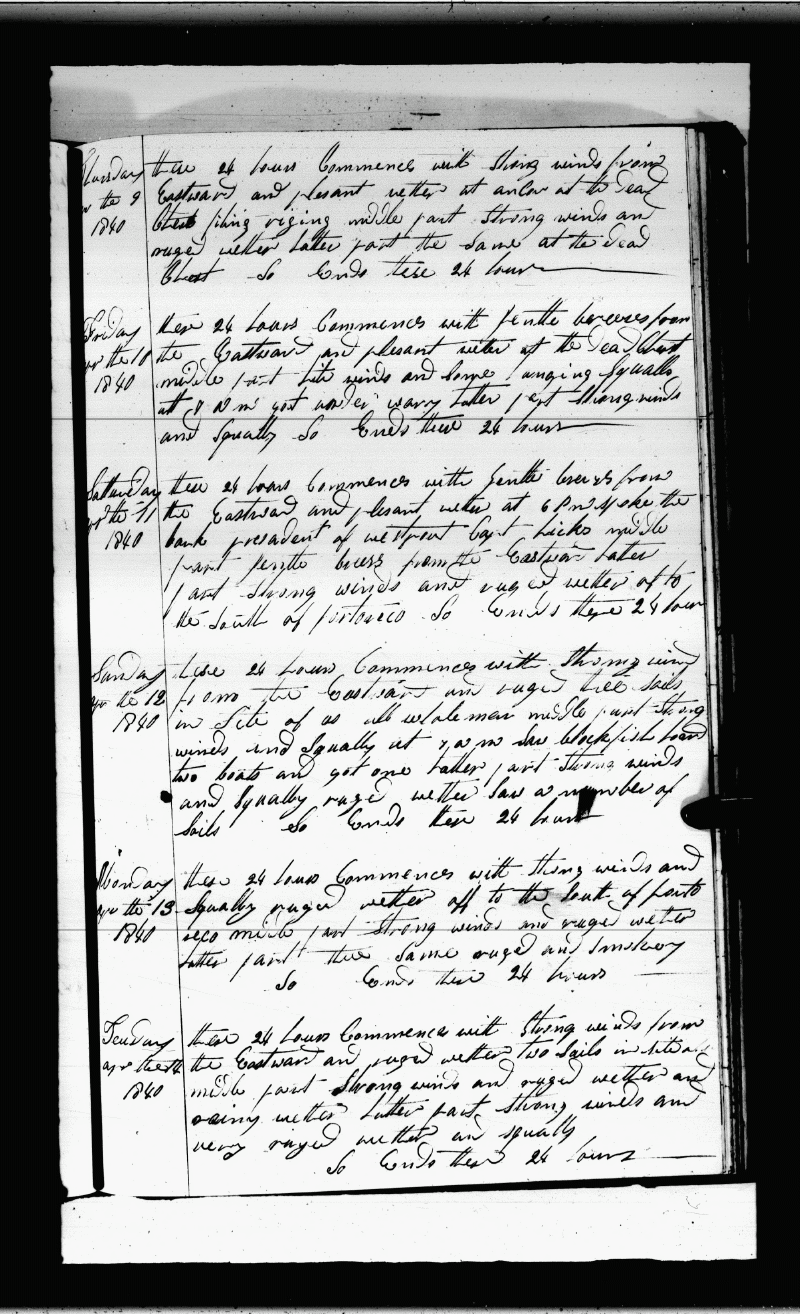 thursday these 24 hours Commences with Strong winds from
apr the 9 Eastward and plesant wether at ancor at the Dead
1840 Chest fiting riging middle part Strong winds an
ruged wether latter part the Same at the Dead
Chest So Ends these 24 hours
Friday these 24 hours Commences with gentle breeses from
apr the 10 the Eastward and plesant wether at the Dead Chest
1840 middle part lite winds and Some Squalls
att 8 a m got under waay latter part Strong winds
and Squally So Ends these 24 hours
Satturday these 24 hours Commences with gentle breezs from
apr the 11 the Eastward and plesant wether at 6 P m Spoke the
1840 bark president of westport Capt hicks middle
part gentle breezs from the Eastward latter
part Strong winds and ruged wether of to
the South of portoreco So Ends these 24 hour
Sunday these 24 hours Commences with Strong wind
apr the 12 from the Eastward and ruged three Sails
1840 in Site of us all whaleman middle part Strong
winds and Squally at 7 a m Saw blackfish loard
two boats and got one latter part Strong winds
and Squally ruged wether Saw a number of
Sails So Ends these 24 hours
Monday these 24 hours Commences with Strong winds and
apr the 13 Squally ruged wether off to the South of porto
1840 reco middle part Strong winds and ruged wether
latter part the Same ruged and Smokery
So Ends these 24 hours
Teusday these 24 hours Commences with Strong winds from
apr the 14 the Eastward and ruged wether two Sails in Site
1840 middle part Strong winds and ruged wether and
rainy wether latter part Strong winds and
very ruged wether an Squally
So Ends these 24 hours